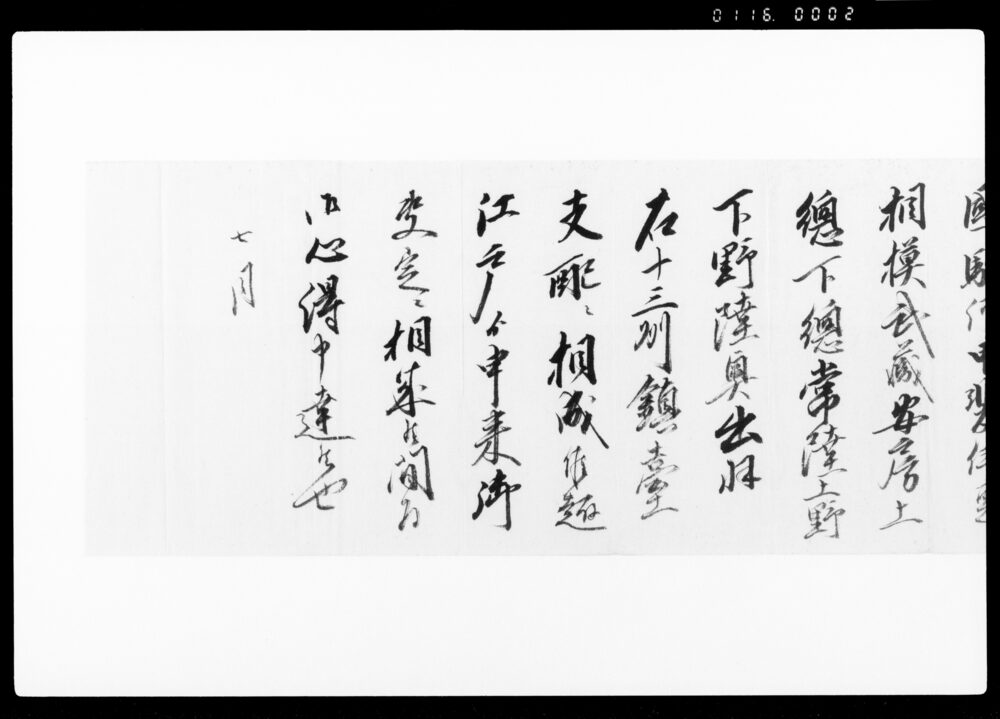 0116. 0002
國駿河甲斐伊豆
相模武蔵安房上
總下總常陸上野
下野陸奥出羽
右十三州鎮臺
支配ニ相成候趣
江戸ゟ申来御
定ニ相成候間為
御心得申達候也
七月